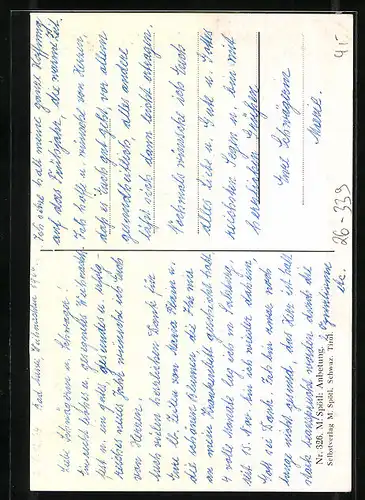 Bad Ischl Weihnachten 1960.
Liebe Schwägerin u. Schwager!
Ein recht frohes u. gesegnetes Weihnachts-
fest u. ein gutes, gesundes u. erfolg-
reiches neues Jahr wünsche ich Euch
von Herzen.
Auch vielen herzlichen Dank für
Eure lb. Zeilen von Maria Plain u.
die schönen Blumen die Ihr mir
an mein Krankenbett geschickt habt.
4 volle Monate lag ich in Salzburg,
seit 13. Nov. bin ich wieder daheim,
Gott sei Dank. Ich bin zwar noch
lange nicht gesund, das Herz ist halt
stark beansprucht worden durch die
etc.
Ich setze halt meine ganze Hoffnung
auf das Frühjahr, die warme Zeit.
Ich hoffe u. wünsche von Herzen,
daß es Euch gut geht, vor allem
gesundheitlich, alles andere
läßt sich dann leicht ertragen.
Nochmals wünsche ich Euch
alles Liebe u. Gute u. Gottes
reichsten Segen u. bin mit
herzlichen Grüßen
Eure Schwägerin
Marie.
Nr. 326. M. Spötl: Anbetung.
Selbstverlag M. Spötl, Schwaz, Tirol.
26-339
4,-